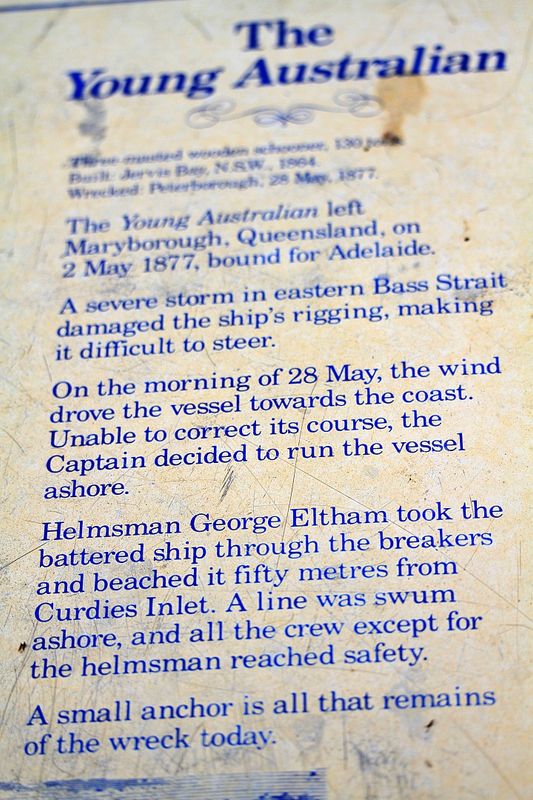 The
Young Australian
Three masted wooden schooner, 130 tons.
Built: Jervis Bay, N.S.W., 1864.
Wrecked: Peterborough, 28 May, 1877.
The Young Australian left
Maryborough, Queensland, on
2 May 1877, bound for Adelaide.
A severe storm in eastern Bass Strait
damaged the ship's rigging, making
it difficult to steer.
On the morning of 28 May, the wind
drove the vessel towards the coast.
Unable to correct its course, the
Captain decided to run the vessel
ashore.
Helmsman George Eltham took the
battered ship through the breakers
and beached it fifty metres from
Curdies Inlet. A line was swum
ashore, and all the crew except for
the helmsman reached safety.
A small anchor is all that remains
of the wreck today.